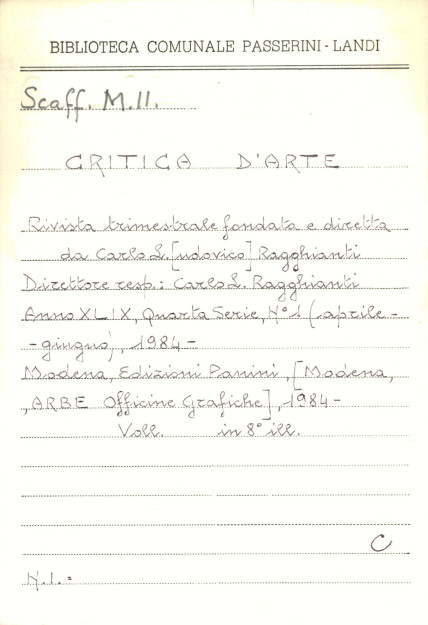 BIBLIOTECA COMUNALE PASSERINI - LANDI
Scaff. M.II.
CRITICA D'ARTE
Rivista trimestrale fondata e diretta
da Carlo L.[udovico] Ragghianti
Direttore resp.: Carlo L. Ragghianti
Anno XLIX, Quarta Serie, N°1 (aprile -
- giugno), 1984 -
Modena, Edizioni Panini, [Modena,
ARBE Officine Grafiche], 1984 -
Voll. in 8° ill.
C
N.I.=